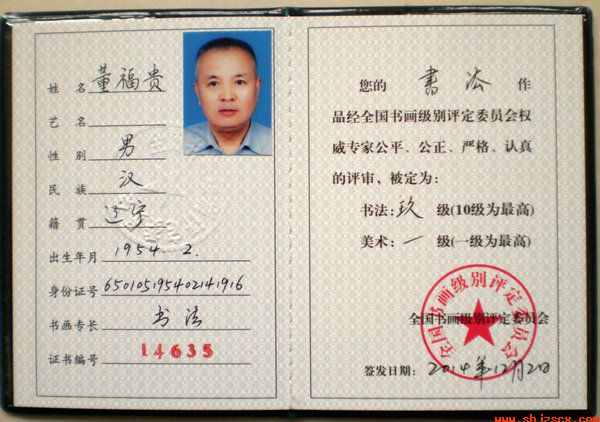 姓 名 董福贵
艺 名
性 别 男
民 族 汉
籍 贯 辽宁
出生年月 1954. 2.
身份证号 650105195402141916
书画专长 书法
证书编号 14635
您的 书法 作
品经全国书画级别评定委员会权
威专家公平、公正、严格、认真
的评审，被定为：
书法：玖 级(10级为最高)
美术：一 级(一级为最高)
全国书画级别评定委员会
全国书画级别评定委员会
签发日期：2014年12月2日
www.shjzscx.com